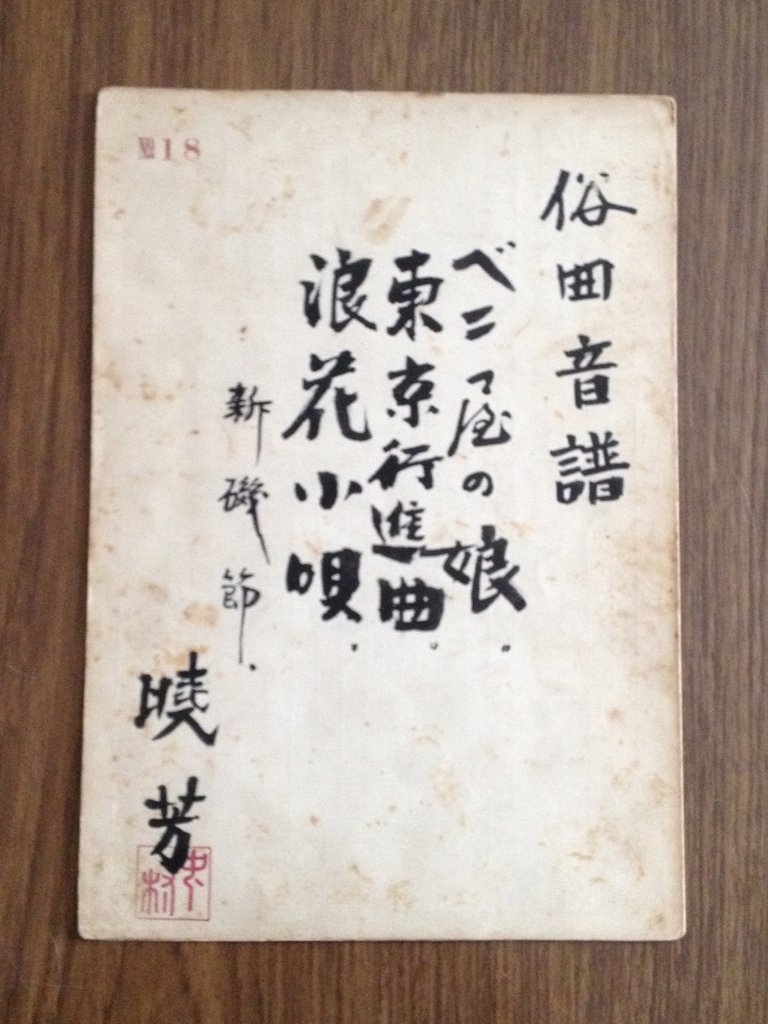 №18
俗曲音譜
ベニ屋の娘.
東京行進曲.
浪花小唄.
新磯節.
曉芳
中村